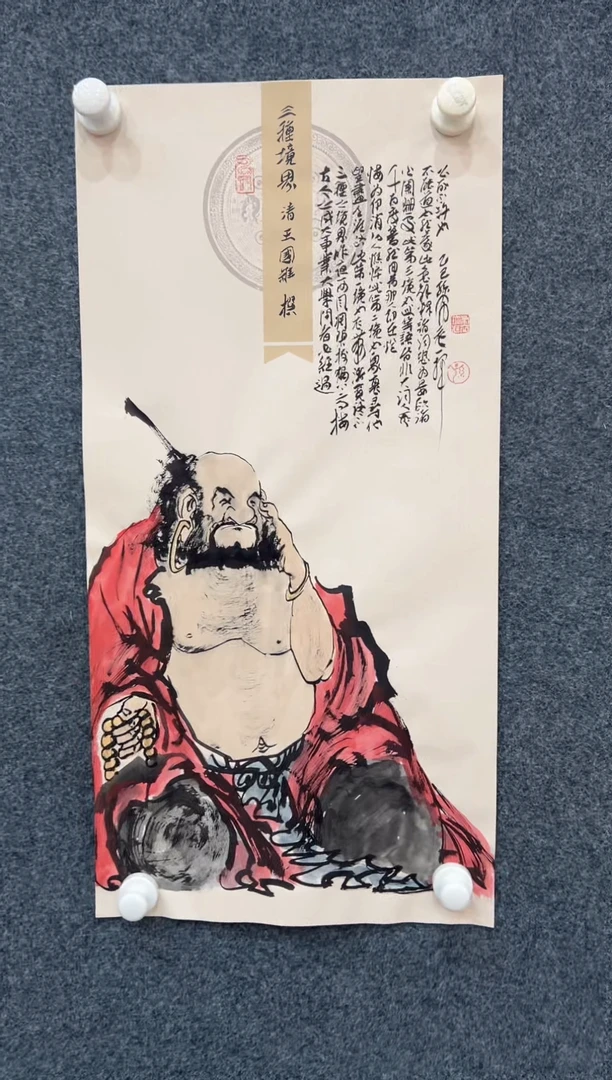 三種境界 清 王國維 撰
古今之成大事業大學問者必經過
三種之境界昨夜西風凋碧樹獨上高樓
望盡天涯路此第一境也衣帶漸寬終不
悔為伊消得人憔悴此第二境也眾裏尋他
千百度驀然回首那人却在燈
火闌珊處此第三境也此等語皆非大詞人
不能道然遽以此意解釋諸詞恐為晏歐諸
公所不許也 乙巳